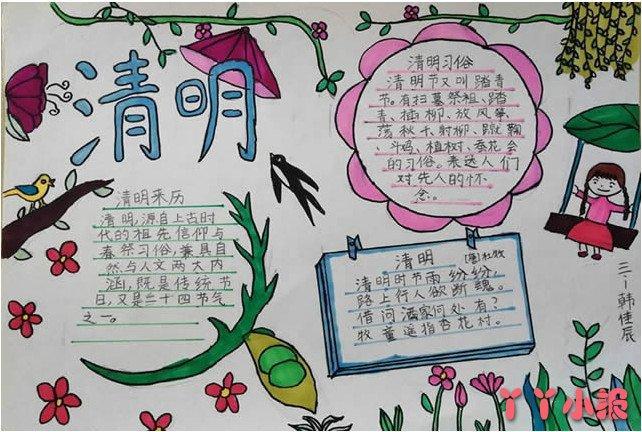 清明
清明来历
清明,源自上古时
代的祖先信仰与
春祭习俗,兼具自
然与人文两大内
涵,既是传统节
日,又是二十四节气
之一。
清明习俗
清明节又叫踏青
节。有扫墓祭祖、踏
青、插柳、放风筝、
荡秋千、射柳、蹴鞠
、斗鸡、植树、蚕花会
的习俗。表达人们
对先人的怀
念。
清明 [唐]杜牧
清明时节雨纷纷,
路上行人欲断魂。
借问酒家何处有?
牧童遥指杏花村。
三、1 韩佳辰
丫丫小报